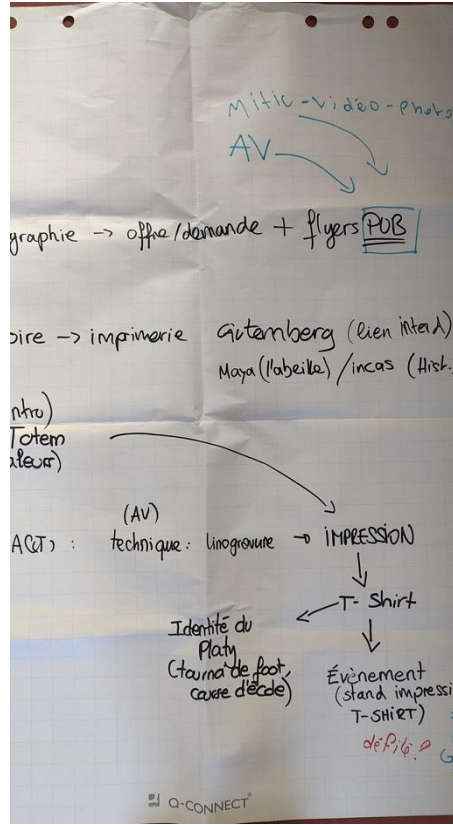 Mitic-vidéo-photo
AV
graphie -> offre/demande + flyers PUB
oire -> imprimerie Gutemberg (lien interd)
Maya (l'abeille) / incas (Hist.
ntro)
Totem
aleurs)
(AV)
AC&T) : technique : linogravure -> IMPRESSION
T-Shirt
Identité du
Platy
(tournoi de foot,
course d'école)
Évènement
(stand impressi
T-SHIRT)
défilé?
Q-CONNECT